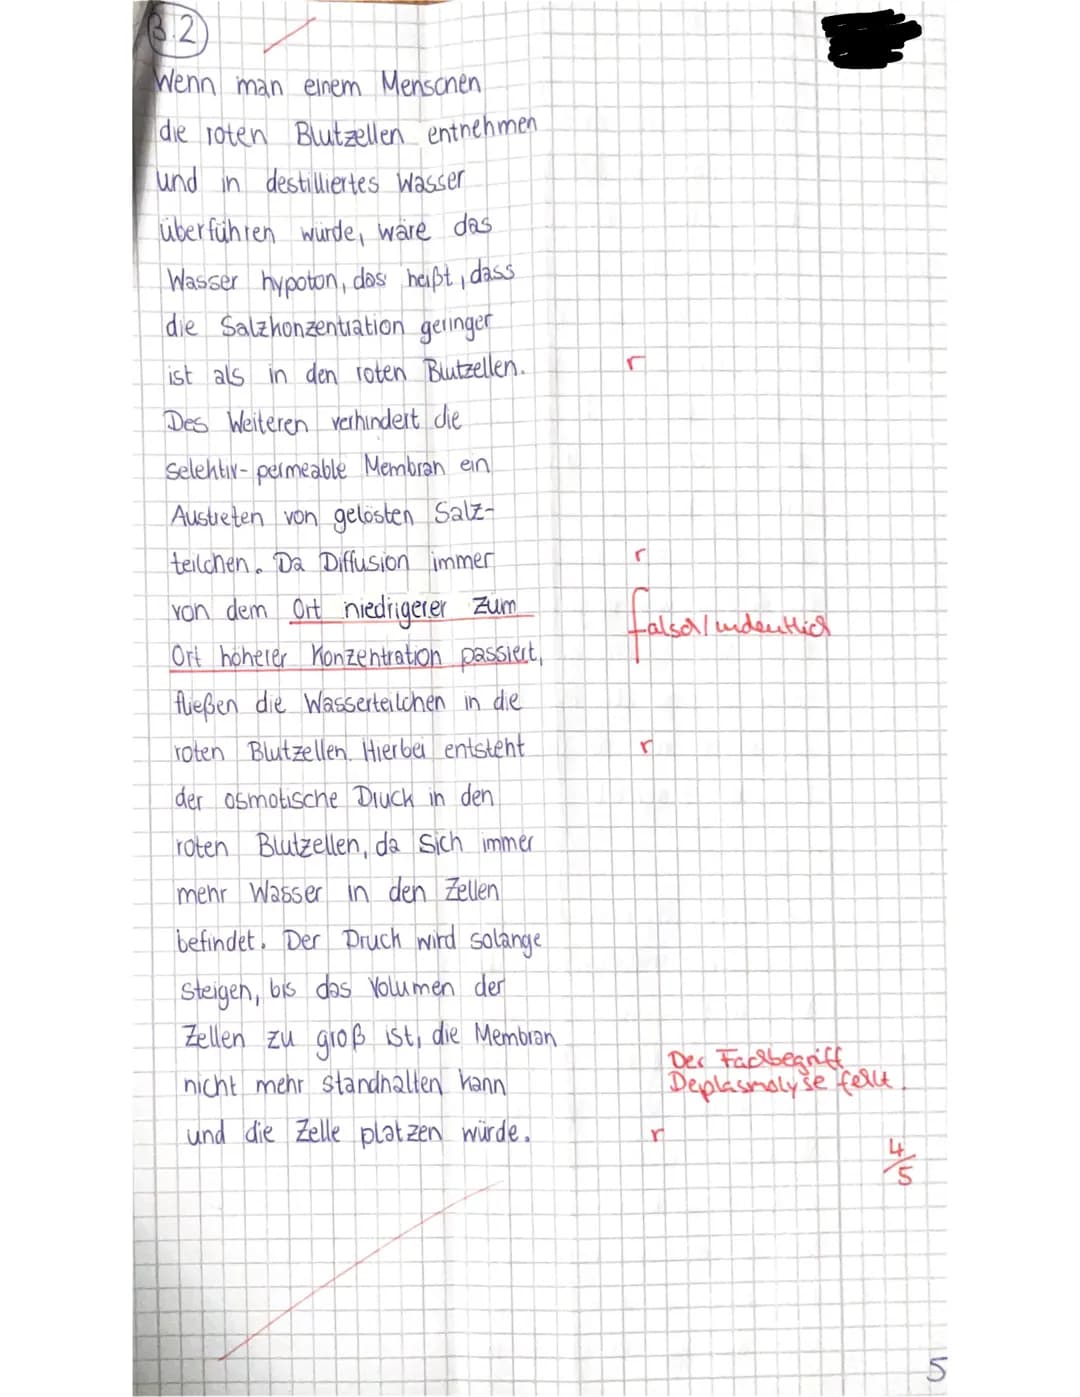 3.2
Wenn man einem Menschen
die roten Blutzellen entnehmen
und in destilliertes Wasser
überführen würde, wäre das
Wasser hypoton, das heißt, dass
die Salzkonzentration geringer
ist als in den roten Blutzellen.
r
Des Weiteren verhindert die
selektiv-permeable Membran ein
Austreten von gelösten Salz-
teilchen. Da Diffusion immer
r
von dem Ort niedrigerer zum
falsch/undeutlich
Ort höherer Konzentration passiert,
fließen die Wasserteilchen in die
roten Blutzellen. Hierbei entsteht
r
der osmotische Druck in den
roten Blutzellen, da sich immer
mehr Wasser in den Zellen
befindet. Der Druck wird solange
steigen, bis das Volumen der
Zellen zu groß ist, die Membran
nicht mehr standhalten kann
Der Fachbegriff
Deplasmolyse fehlt.
und die Zelle platzen würde.
r
4/5
5